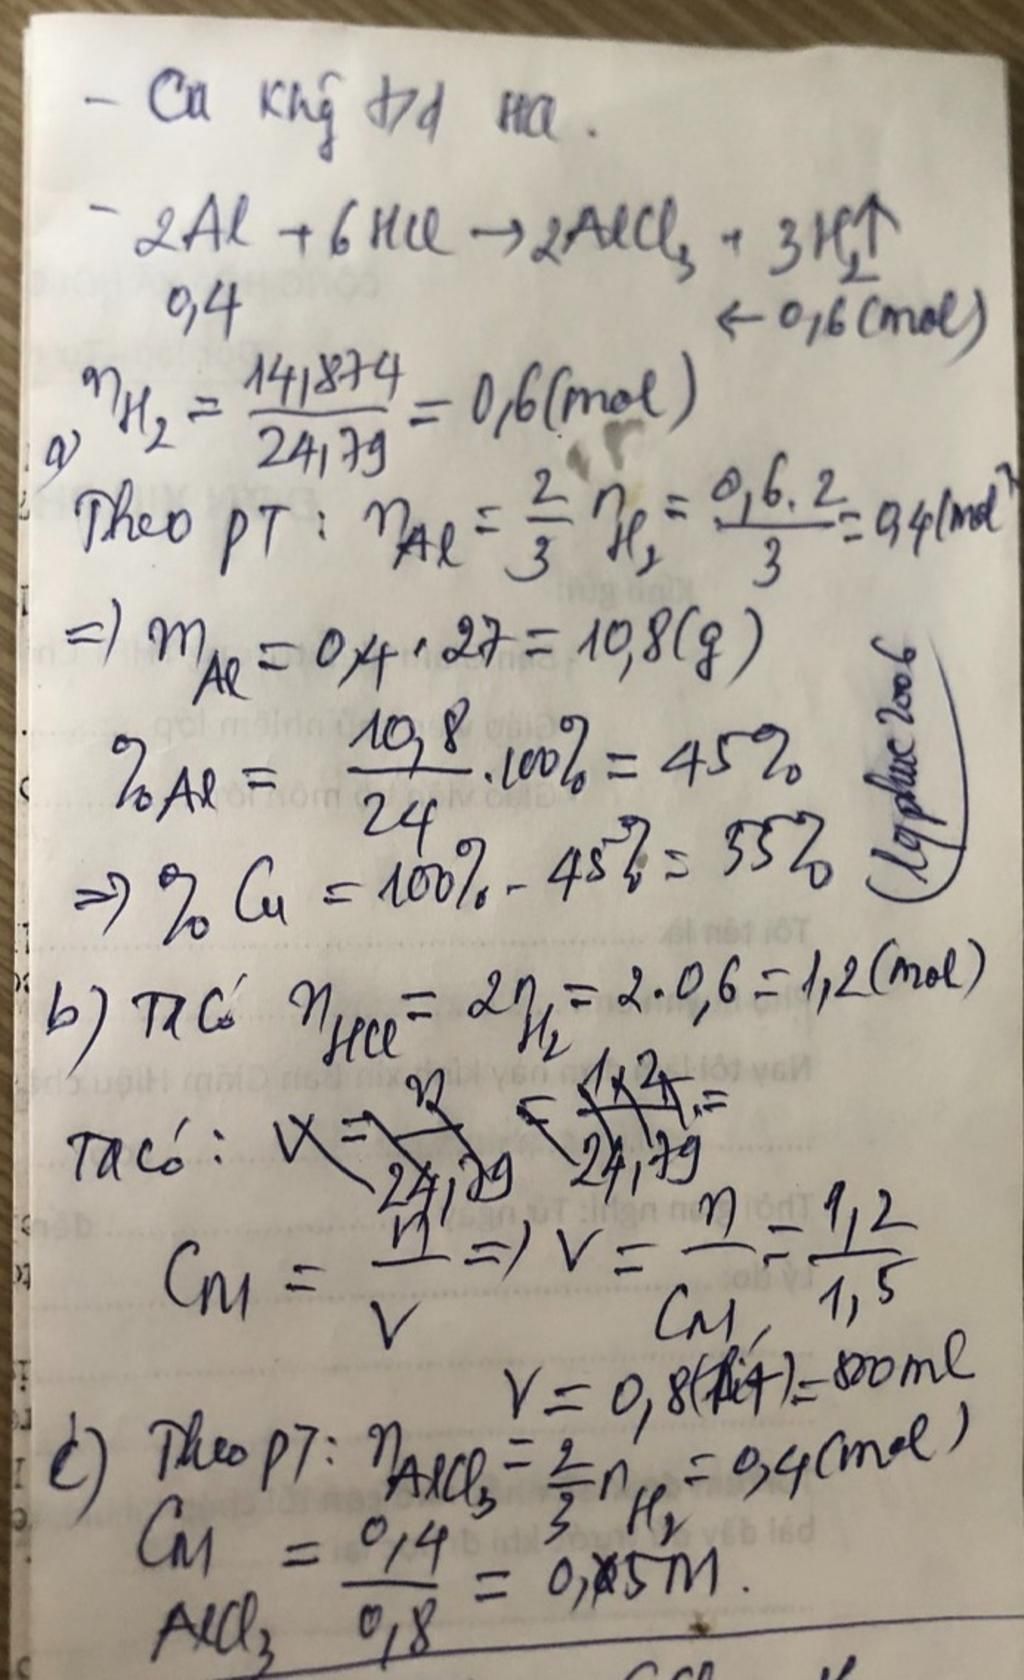 - Cu khg t/d HCl.
- 2Al + 6HCl → 2AlCl₃ + 3H₂↑
0,4 ← 0,6 (mol)
a) nH₂ = 14,874/24,79 = 0,6 (mol)
Theo pT: nAl = 2/3 nH₂ = 0,6.2/3 = 0,4 (mol)
=) mAl = 0,4 . 27 = 10,8 (g)
%Al = 10,8/24 .100% = 45%
=> % Cu = 100% - 45% = 55%
lqphuc2006
b) Ta có nHCl = 2nH₂ = 2.0,6 = 1,2 (mol)
Ta có: V = n/24,79 = 1,2/24,79 =
CM = n/V =) V = n/CM = 1,2/1,5
V = 0,8 (lít) = 800ml
c) Theo pT: nAlCl₃ = 2/3 nH₂ = 0,4 (mol)
CM AlCl₃ = 0,4/0,8 = 0,5M.